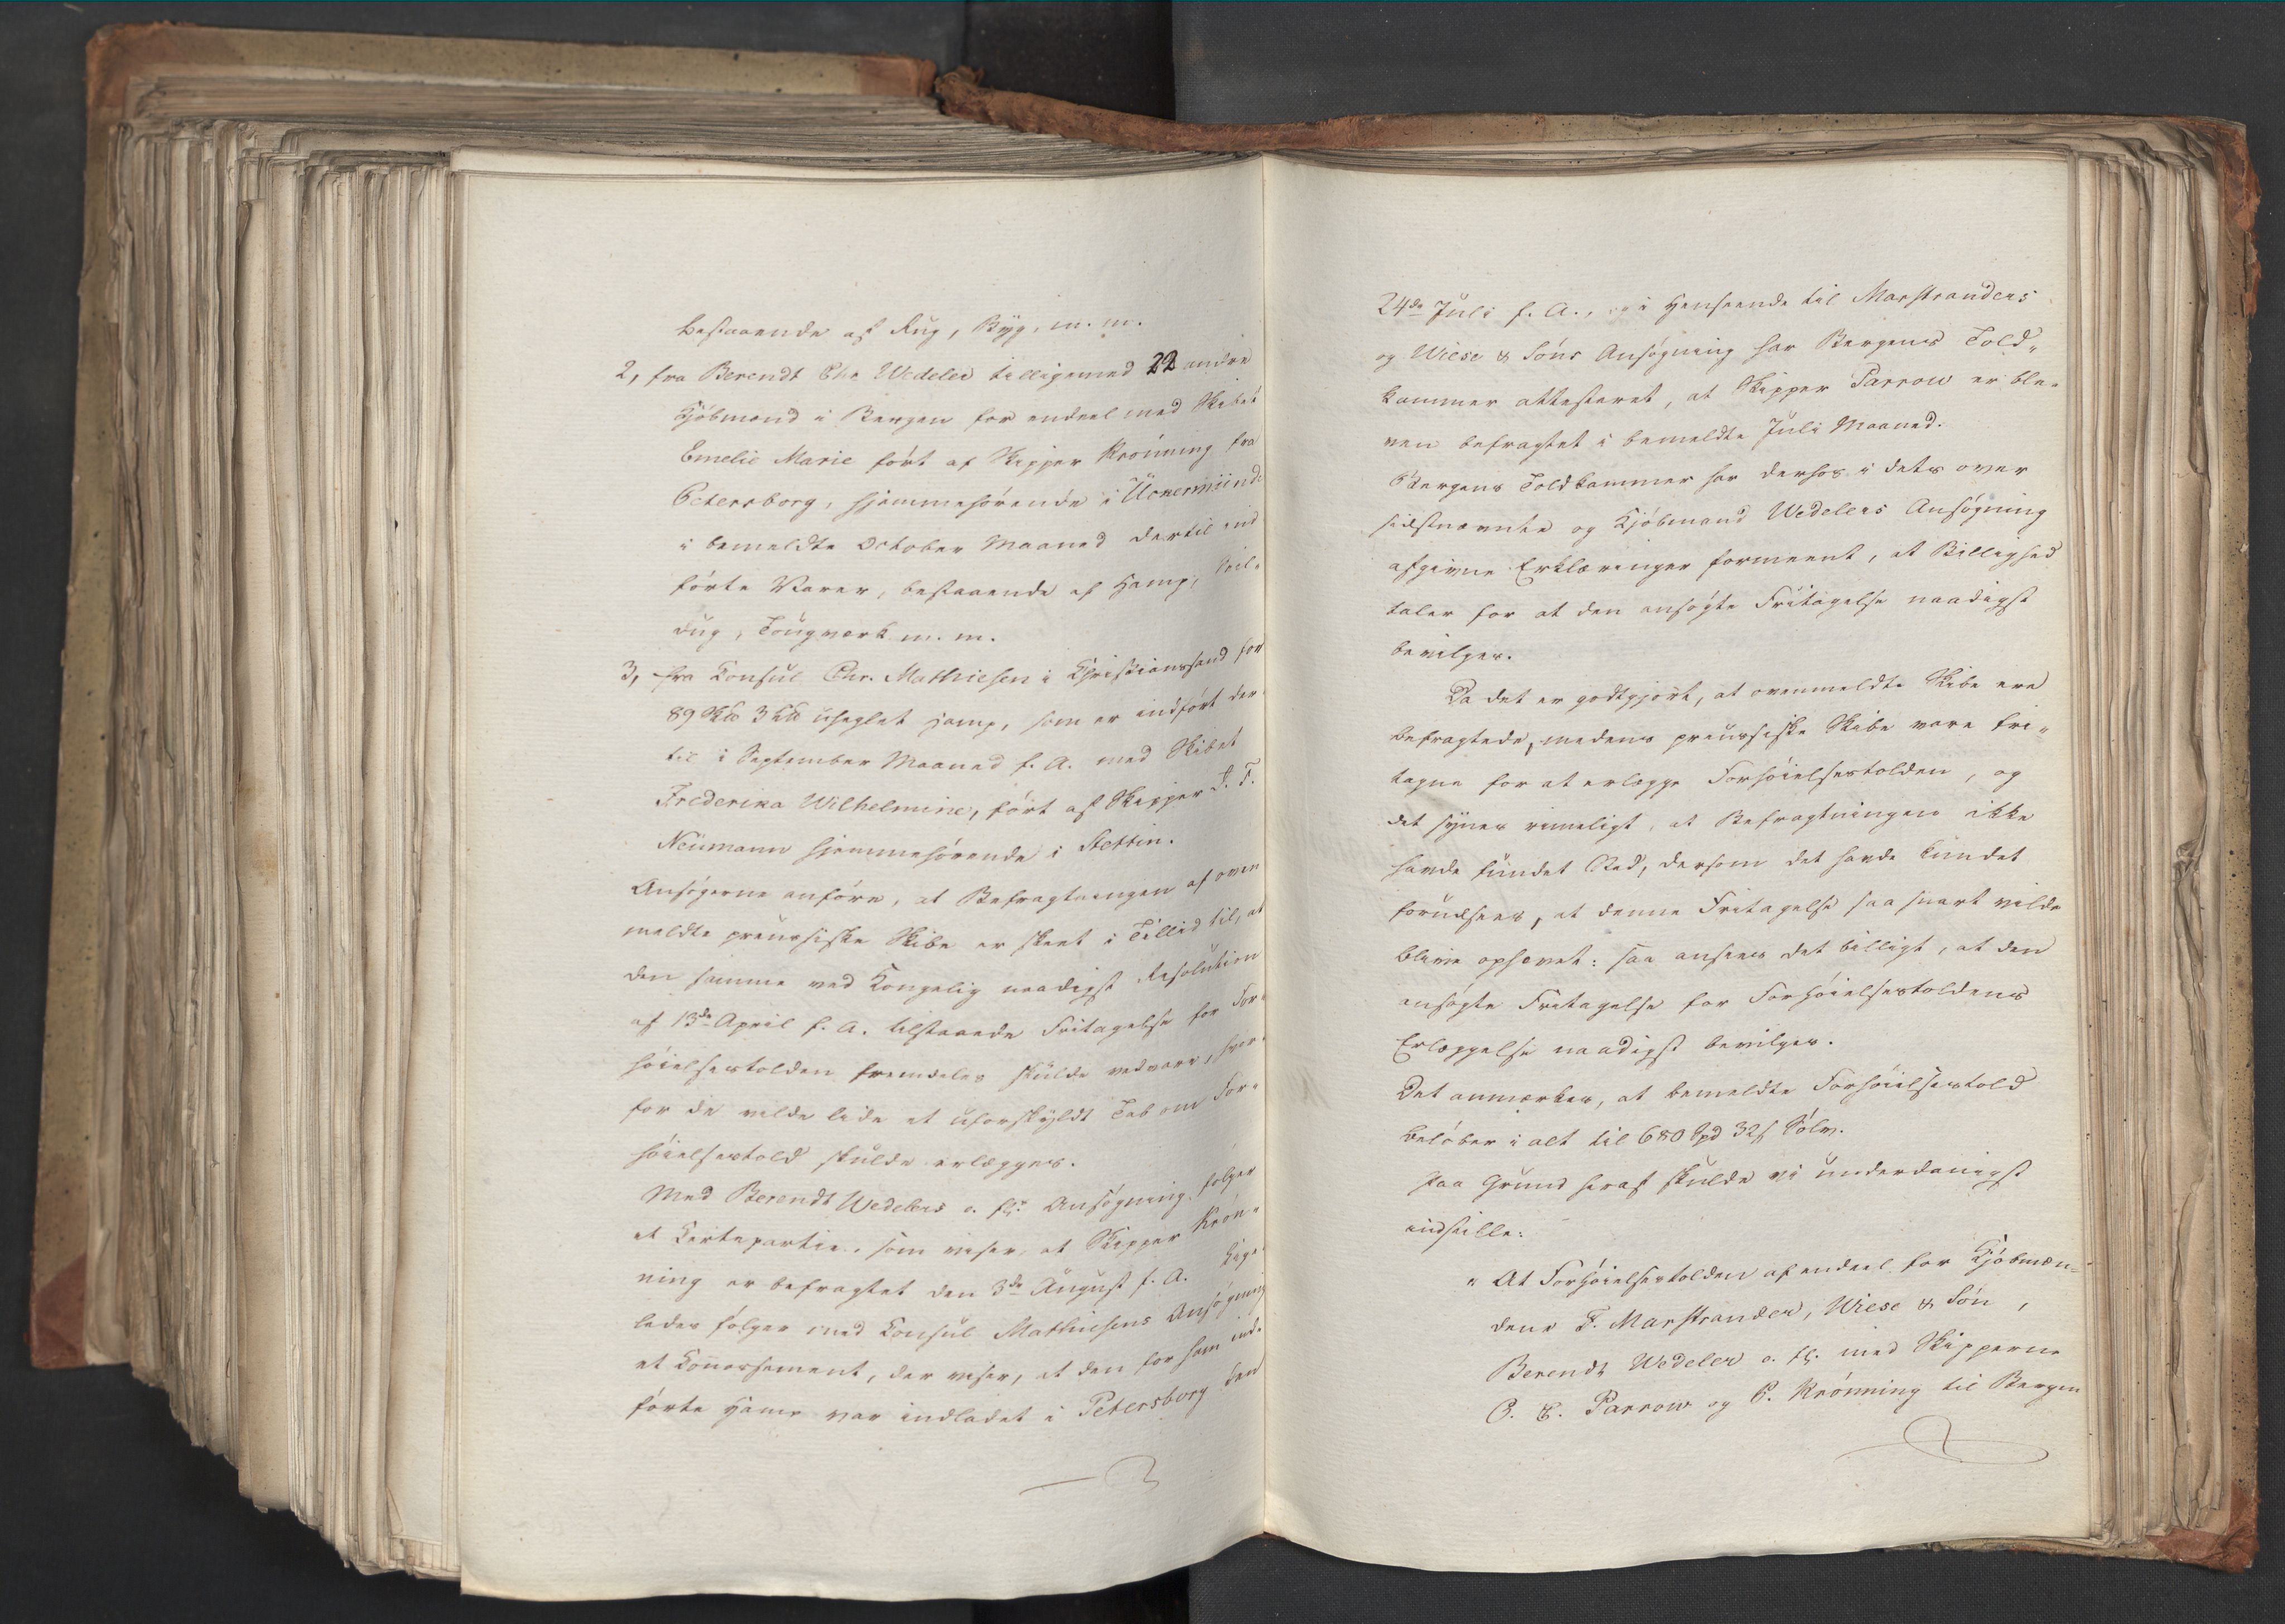 bestaaende af Rug, Byg, m. m.
2, fra Berendt Chr. Wedeler tilligemed 22 andre
Kjöbmænd i Bergen for endeel med Skibet
Emelie Marie fört af Skipper Krönning fra
Petersborg, hjemmehörende i Uckermünde
i bemeldte October Maaned dertil ind
förte Varer, bestaaende af Hamp, Seil-
dug, Tougværk m. m.
3, fra Konsul Chr. Mathiesen i Christianssand for
89 Sk℔ 3 L℔ uheglet Hamp, som er indfört der
til i September Maaned f. A. med Skibet
Frederika Wilhelmine, fört af Skipper J. F.
Neumann hjemmehörende i Stettin.
Ansögerne anföre, at Befragtningen af oven
meldte preussiske Skibe er skeet i Tillid til, at
den samme ved Kongelig naadigst Resolution
af 13de April f. A. tilstaaede Fritagelse for For-
höielsestolden fremdeles skulde vedvare, hvor-
for de vilde lide et uforskyldt Tab om For-
höielsestold skulde erlægges.
Med Berendt Wedelers o. fl: Ansögning fölger
et Certepartie, som viser, at Skipper Krön-
ning er befragtet den 3de August f. A. Lige-
ledes fölger med Konsul Mathiesens Ansögning
et Connossement, der viser, at den for ham ind-
förte Hamp var indladet i Petersborg den
24de Juli f. A., og i Henseende til Marstranders
og Wiese & Söns Ansögning har Bergens Told-
kammer attesteret, at Skipper Parrow er ble-
ven befragtet i bemeldte Juli Maaned.
Bergens Toldkammer har derhos i dets over
sidstnævnte og Kjöbmand Wedelers Ansögning
afgivne Erklæringer formeent, at Billighed
taler for at den ansögte Fritagelse naadigst
bevilges.
Da det er godtgjort, at ovenmeldte Skibe ere
befragtede, medens preussiske Skibe vare fri-
tagne for at erlægge Forhöielsestolden, og
det synes rimeligt, at Befragtningen ikke
havde fundet Sted, dersom det havde kundet
forudsees, at denne Fritagelse saa snart vilde
blive ophævet: saa ansees det billigt, at den
ansögte Fritagelse for Forhöielsestoldens
Erlæggelse naadigst bevilges.
Det anmærkes, at bemeldte Forhöielsestold
belöber i alt til 680 Spd 32 s Sölv.
Paa Grund heraf skulde vi underdanigst
indstille:
"At Forhöielsestolden af endeel for Kjöbmæn-
dene F. Marstrander, Wiese & Sön,
Berendt Wedeler o. fl. med Skipperne
C. E. Parrow og P. Krönning til Bergen